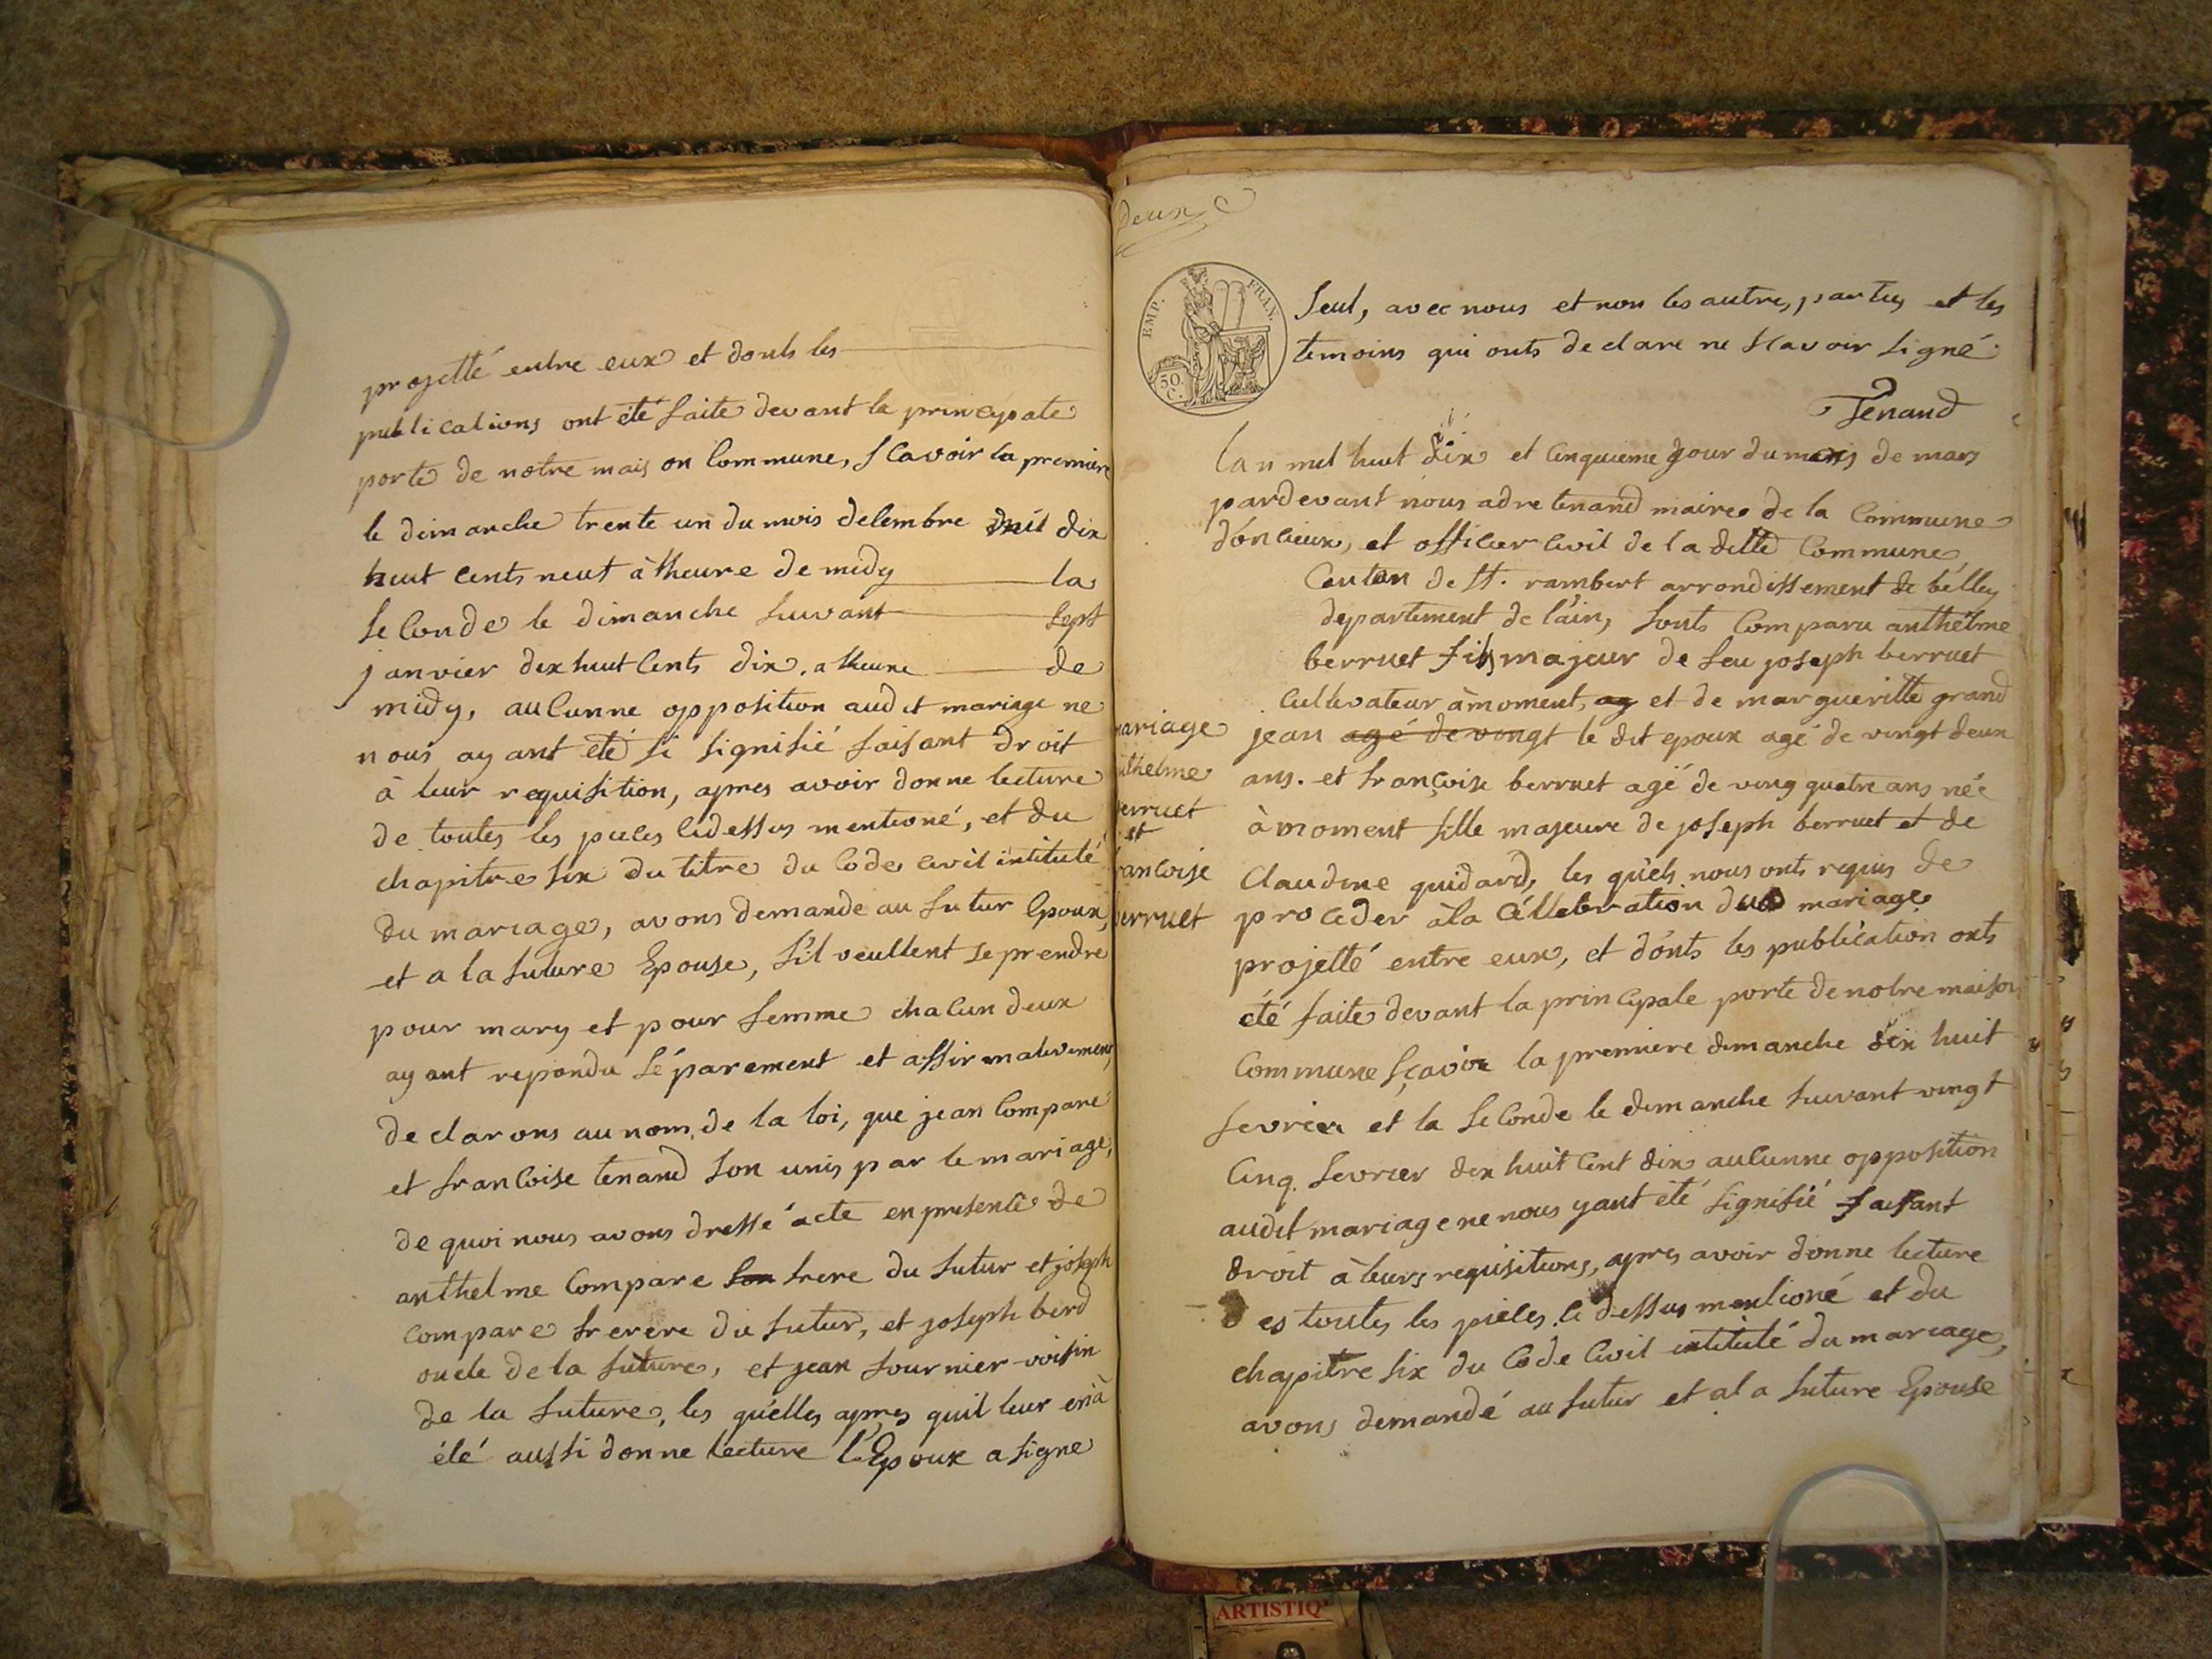 projetté entre eux et donts les
publications ont été faite devant la principate
porte de notre mais on Commune, scavoir la premiere
le dimanche trente un du mois decembre mil dix
huit cents neuf à l'heure de midy la
seconde le dimanche suivant sept
janvier dix huit cents dix. a l'heure de
midy, aucunne opposition audit mariage ne
nous ayant été si signifié faisant droit
à leur requisition, apres avoir donne lecture
de toutes les pieces cidessus mentioné, et du
chapitre six du titre du Code civil intitulé
du mariage, avons demande au futur Epoux,
et a la future Epouse, s'il veullent se prendre
pour mary et pour femme chacun deux
ayant repondu séparement et affirmativement,
declarons au nom de la loi, que jean Compare
et francoise tenand son unis par le mariage,
de quoi nous avons dressé acte en presence de
anthelme Compare son frere du futur et joseph
Compare frerere du futur, et joseph bird
oncle de la future, et jean fournier voisin
de la future, les qu'elles apres quil leur en a
été aussi donne lecture l'Epoux a signe
Deux
EMP. FRAN.
50.
C.
seul, avec nous et non les autres, parties et les
temoins qui onts declare ne scavoir signé
Tenand
lan mil huit dix et cinquieme jour du mois de mars
pardevant nous adre tenand maire de la Commune
d'oncieux, et officier civil de la ditte Commune,
Canton de St. rambert arrondissement de belley
departement de l'ain, sonts Comparu anthelme
berruet fils majeur de feu joseph berruet
Cultivateur à moment, ag et de margueritte grand
jean agé de vingt le dit epoux agé de vingt deux
ans. et françoise berruet agé de ving quatre ans née
à moment fille majeure de joseph berruet et de
Claudine guidard, les qu'els nous onts requis de
proceder à la Céllebration du mariage
projetté entre eux, et donts les publication onts
été faite devant la principale porte de notre maison
Commune sçavoir la premiere dimanche dix huit
fevrier et la seconde le dimanche suivant vingt
Cinq. fevrier dix huit cent dix aucunne opposition
audit mariage ne nous yant été signifié faisant
droit à leurs requisitions, apres avoir donne lecture
des toutes les pieces ci dessus mentioné et du
chapitre six du Code Civil intitulé du mariage,
avons demandé au futur et a la future Epouse
mariage
anthelme
berruet
et
francoise
berruet
ARTISTIQ